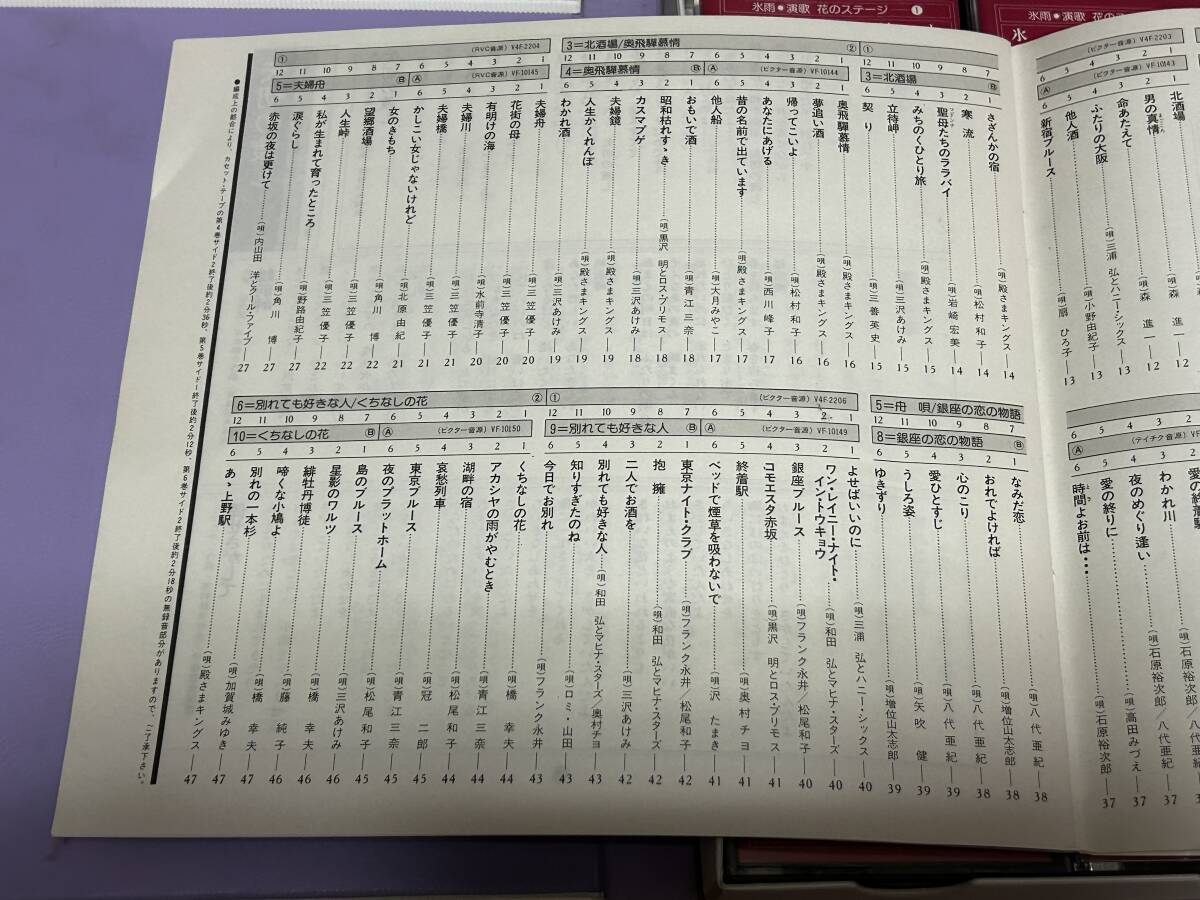 氷雨・演歌 花のステージ ❶
氷雨・演歌 花の
氷
V4F-2203
VF-10143
Ⓐ
北酒場
2 男の真情……(唄)森 進一―12
3 命あたえて……(唄)森 進一―12
4 ふたりの大阪……(唄)三浦 弘とハニー・シックス―13
5 他人酒……(唄)小野由紀子―13
6 新宿ブルース……(唄)扇 ひろ子―13
①
3=北酒場 Ⓑ
7 1 さざんかの宿……(唄)殿さまキングス―14
8 2 寒 流……(唄)松村和子―14
9 3 聖母たちのララバイ……(唄)岩崎宏美―14
10 4 みちのくひとり旅……(唄)殿さまキングス―15
11 5 立待岬……(唄)三沢あけみ―15
12 6 契 り……(唄)三善英史―15
3=北酒場/奥飛騨慕情 ②
4=奥飛騨慕情 Ⓑ Ⓐ (ビクター音源) VF-10144
1 1 奥飛騨慕情……(唄)殿さまキングス―16
2 2 夢追い酒……(唄)殿さまキングス―16
3 3 帰ってこいよ……(唄)松村和子―16
4 4 あなたにあげる……(唄)西川峰子―17
5 5 昔の名前で出ています……(唄)殿さまキングス―17
6 6 他人船……(唄)大月みやこ―17
7 1 おもいで酒……(唄)青江三奈―18
8 2 昭和枯れすゝき……(唄)黒沢 明とロス・プリモス―18
9 3 カスマプゲ……(唄)三沢あけみ―18
10 4 夫婦鏡……(唄)殿さまキングス―19
11 5 人生かくれんぼ……(唄)殿さまキングス―19
12 6 わかれ酒……(唄)三沢あけみ―19
① (RVC音源) V4F-2204
5=夫婦舟 Ⓑ Ⓐ (RVC音源) VF-10145
1 1 夫婦舟……(唄)三笠優子―20
2 2 花街の母……(唄)三笠優子―20
3 3 有明けの海……(唄)水前寺清子―20
4 4 夫婦川……(唄)三笠優子―21
5 5 夫婦橋……(唄)三笠優子―21
6 6 かしこい女じゃないけれど……(唄)北原由紀―21
7 1 女のきもち……(唄)角川 博―22
8 2 望郷酒場……(唄)三笠優子―22
9 3 人生峠……(唄)三笠優子―22
10 4 私が生まれて育ったところ……(唄)野路由紀子―27
11 5 涙ぐらし……(唄)角川 博―27
12 6 赤坂の夜は更けて……(唄)内山田 洋とクール・ファイブ―27
(テイチク音源) VF-101
Ⓐ
愛の終着駅
3 わかれ川……(唄)石原裕次郎/八代亜紀―37
4 夜のめぐり逢い……(唄)石原裕次郎/八代亜紀―37
5 愛の終りに……(唄)高田みづえ―37
6 時間よお前は・・・……(唄)石原裕次郎―37
5=舟 唄/銀座の恋の物語
8=銀座の恋の物語 Ⓑ
7 1 なみだ恋……(唄)八代亜紀―38
8 2 おれでよければ……(唄)増位山太志郎―38
9 3 心のこり……(唄)八代亜紀―38
10 4 愛ひとすじ……(唄)八代亜紀―39
11 5 うしろ姿……(唄)矢吹 健―39
12 6 ゆきずり……(唄)増位山太志郎―39
① (ビクター音源) V4F-2206
9=別れても好きな人 Ⓑ Ⓐ (ビクター音源) VF-10149
1 1 よせばいいのに……(唄)三浦 弘とハニー・シックス―40
2 2 ワン・レイニー・ナイト・イントウキョウ……(唄)和田 弘とマヒナ・スターズ―40
3 3 銀座ブルース……(唄)フランク永井/松尾和子―40
4 4 コモエスタ赤坂……(唄)黒沢 明とロス・プリモス―41
5 5 終着駅……(唄)奥村チヨ―41
6 6 ベッドで煙草を吸わないで……(唄)沢 たまき―41
7 1 東京ナイト・クラブ……(唄)フランク永井/松尾和子―42
8 2 抱 擁……(唄)和田 弘とマヒナ・スターズ―42
9 3 二人でお酒を……(唄)三沢あけみ―42
10 4 別れても好きな人……(唄)和田 弘とマヒナ・スターズ/奥村チヨ―43
11 5 知りすぎたのね……(唄)ロミ・山田―43
12 6 今日でお別れ……(唄)フランク永井―43
6=別れても好きな人/くちなしの花 ②
10=くちなしの花 Ⓑ Ⓐ (ビクター音源) VF-10150
1 1 くちなしの花……(唄)橋 幸夫―44
2 2 アカシヤの雨がやむとき……(唄)青江三奈―44
3 3 湖畔の宿……(唄)松尾和子―44
4 4 哀愁列車……(唄)冠 二郎―44
5 5 東京ブルース……(唄)青江三奈―45
6 6 夜のプラットホーム……(唄)松尾和子―45
7 1 島のブルース……(唄)三沢あけみ―46
8 2 星影のワルツ……(唄)橋 幸夫―46
9 3 緋牡丹博徒……(唄)藤 純子―46
10 4 啼くな小鳩よ……(唄)橋 幸夫―47
11 5 別れの一本杉……(唄)加賀城みゆき―47
12 6 あゝ上野駅……(唄)殿さまキングス―47
●編成上の都合により、カセット・テープの第4巻サイド2終了後約2分36秒、第5巻サイド1終了後約2分12秒、第6巻サイド2終了後約2分18秒の無録音部分がありますので、ご了承下さい。